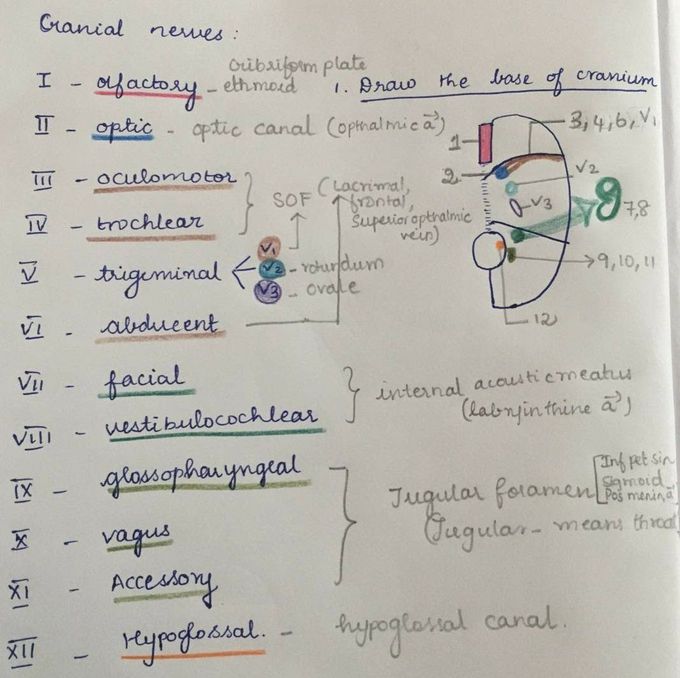 Cranial nerves:
I - olfactory - Cribriform plate ethmoid
1. Draw the base of cranium
II - optic - optic canal (opthalmic a⃗)
III - oculomotor
IV - trochlear
SOF (Lacrimal,
frontal,
Superior opthalmic
vein)
V - trigeminal
V1
V2 - rotundum
V3 - ovale
VI - abducent
VII - facial
VIII - vestibulocochlear
internal acoustic meatus
(labyrinthine a⃗)
IX - glossopharyngeal
X - vagus
XI - Accessory
Jugular foramen
[Inf pet sin
Sigmoid
Pos menin a⃗
(Jugular - means throat
XII - Hypoglossal. - hypoglossal canal.
1
2
3, 4, 6, V1
V2
V3
7,8
9, 10, 11
12